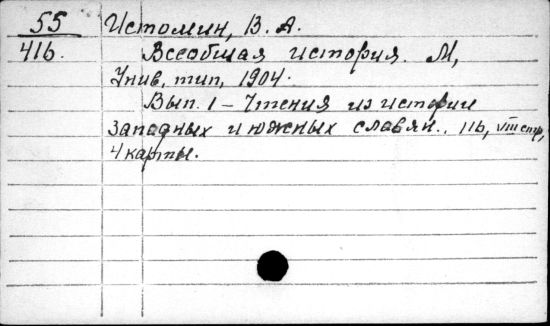 55 Истомин, В. А.
416. Всеобщая история. М,
Унив. тип, 1904.
Вып. 1 - Чтения из истории
западных и южных славян.. 116, VIII стр,
4 карты.